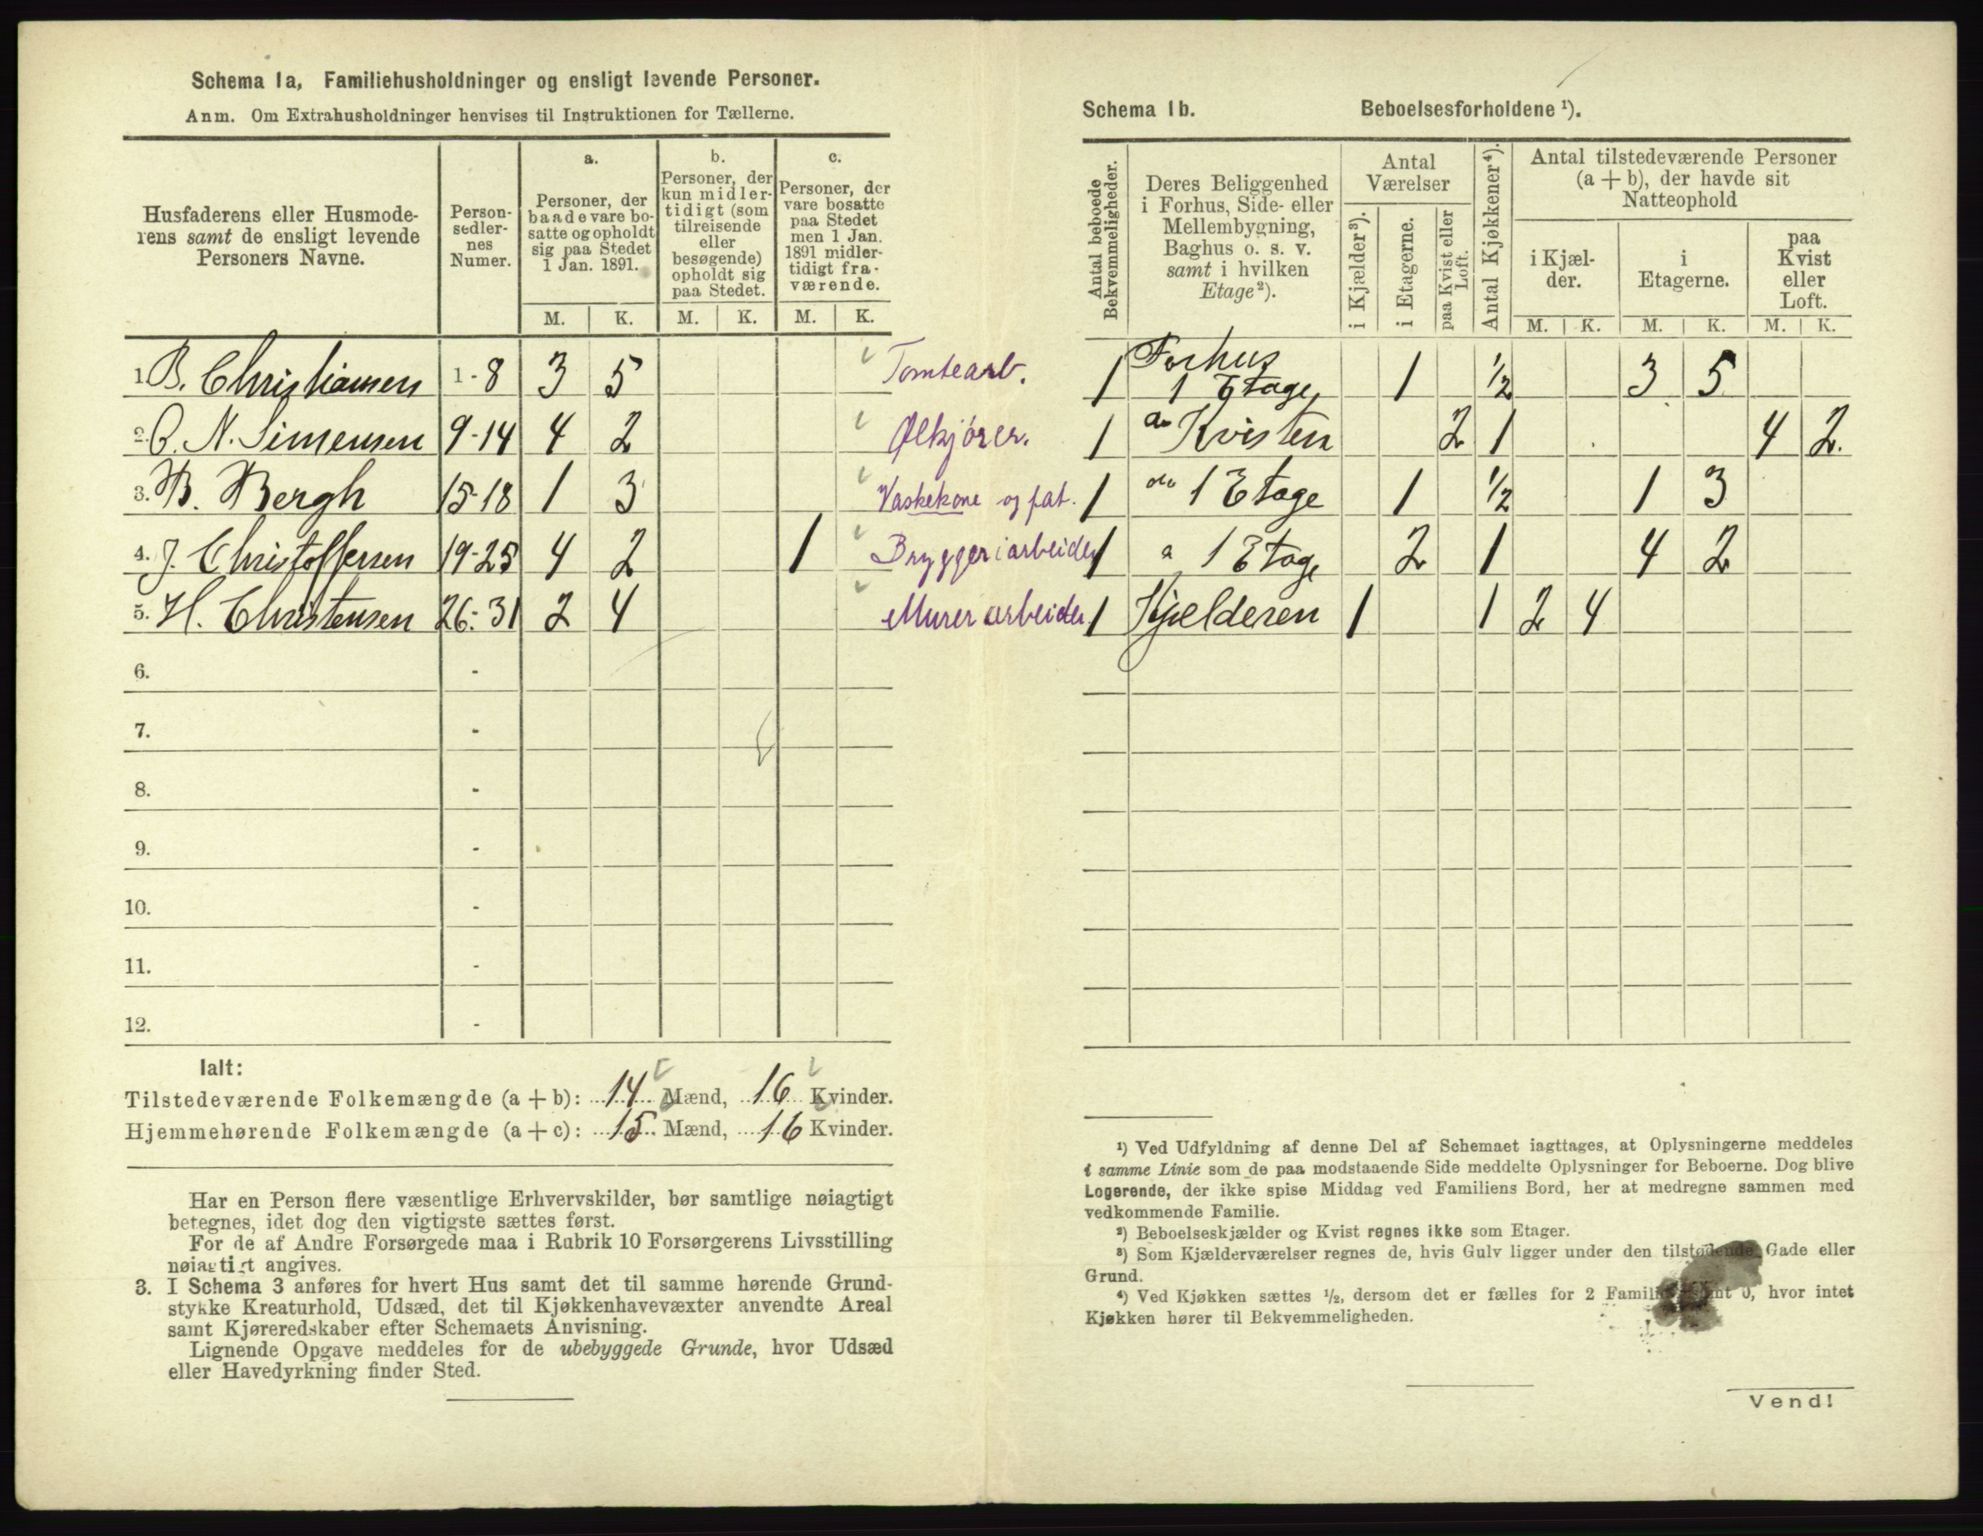 Schema 1a, Familiehusholdninger og ensligt levende Personer.
Anm. Om Extrahusholdninger henvises til Instruktionen for Tællerne.
Husfaderens eller Husmode-
rens samt de ensligt levende
Personers Navne.
Person-
sedler-
nes
Numer.
a.
Personer, der
baade vare bo-
satte og opholdt
sig paa Stedet
1 Jan. 1891.
b.
Personer, der
kun midler-
tidigt (som
tilreisende
eller
besøgende)
opholdt sig
paa Stedet.
c.
Personer, der
vare bosatte
paa Stedet
men 1 Jan.
1891 midler-
tidigt fra-
værende.
M. K. M. K. M. K.
1. B. Christiansen 1-8 3 5 Tomtearb.
2. O. N. Simensen 9-14 4 2 Ølkjører.
3. B. Bergh 15-18 1 3 Vaskekone og fat.
4. J. Christoffersen 19-25 4 2 1 Bryggeriarbeider
5. H. Christensen 26-31 2 4 Murerarbeider
6. -
7. -
8. -
9. -
10. -
11. -
12. -
Ialt:
Tilstedeværende Folkemængde (a + b): 14 Mænd, 16 Kvinder.
Hjemmehørende Folkemængde (a + c): 15 Mænd, 16 Kvinder.
Har en Person flere væsentlige Erhvervskilder, bør samtlige nøiagtigt
betegnes, idet dog den vigtigste sættes først.
For de af Andre Forsørgede maa i Rubrik 10 Forsørgerens Livsstilling
nøiagtigt angives.
3. I Schema 3 anføres for hvert Hus samt det til samme hørende Grund-
stykke Kreaturhold, Udsæd, det til Kjøkkenhavevæxter anvendte Areal
samt Kjøreredskaber efter Schemaets Anvisning.
Lignende Opgave meddeles for de ubebyggede Grunde, hvor Udsæd
eller Havedyrkning finder Sted.
Schema 1b. Beboelsesforholdene ¹).
Antal beboede
Bekvemmeligheder.
Deres Beliggenhed
i Forhus, Side- eller
Mellembygning,
Baghus o. s. v.
samt i hvilken
Etage²).
Antal
Værelser
i Kjælder³).
i Etagerne.
paa Kvist eller
Loft.
Antal Kjøkkener⁴).
Antal tilstedeværende Personer
(a + b), der havde sit
Natteophold
i Kjæl-
der.
i
Etagerne.
paa
Kvist
eller
Loft.
M. K. M. K. M. K.
1 Forhus
1 Etage 1 ½ 3 5
1 do Kvisten 2 1 4 2
1 do 1 Etage 1 ½ 1 3
1 1 Etage 2 1 4 2
1 Kjælderen 1 1 2 4
¹) Ved Udfyldning af denne Del af Schemaet iagttages, at Oplysningerne meddeles
i samme Linie som de paa modstaaende Side meddelte Oplysninger for Beboerne. Dog blive
Logerende, der ikke spise Middag ved Familiens Bord, her at medregne sammen med
vedkommende Familie.
²) Beboelseskjælder og Kvist regnes ikke som Etager.
³) Som Kjælderværelser regnes de, hvis Gulv ligger under den tilstødende Gade eller
Grund.
⁴) Ved Kjøkken sættes ½, dersom det er fælles for 2 Familier samt 0, hvor intet
Kjøkken hører til Bekvemmeligheden.
Vend!